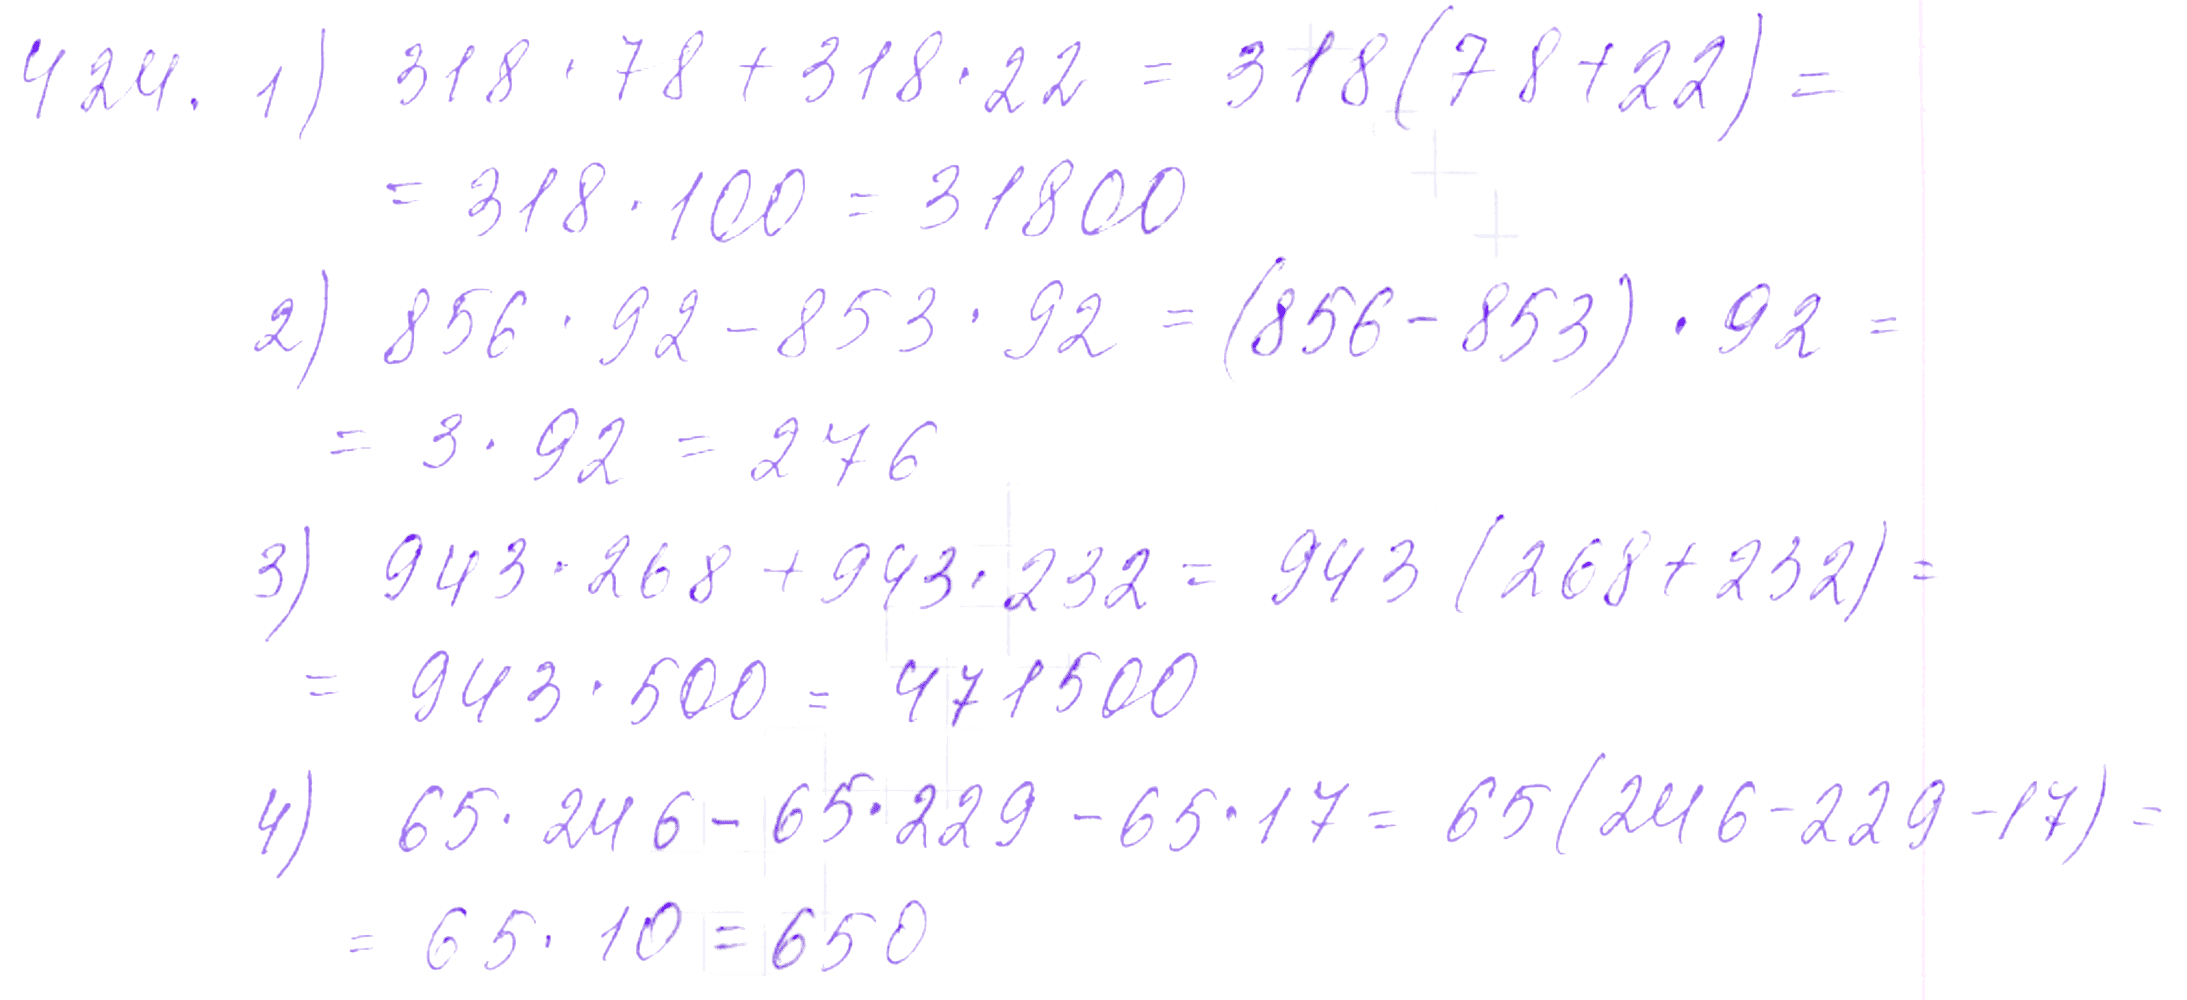 424. 1) 318 · 78 + 318 · 22 = 318(78+22) =
= 318 · 100 = 31800
2) 856 · 92 - 853 · 92 = (856 - 853) · 92 =
= 3 · 92 = 276
3) 943 · 268 + 943 · 232 = 943 (268 + 232) =
= 943 · 500 = 471500
4) 65 · 246 - 65 · 229 - 65 · 17 = 65(246 - 229 - 17) =
= 65 · 10 = 650